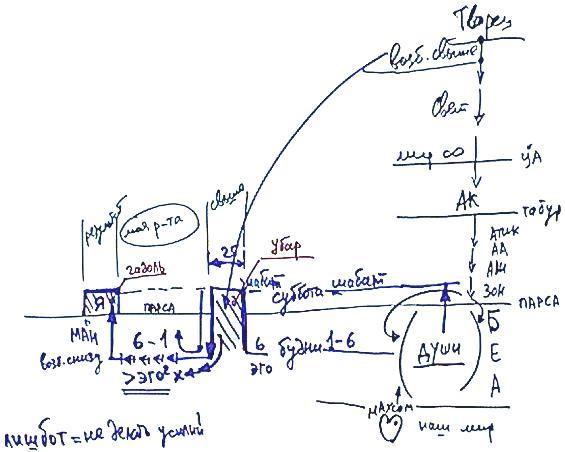 Творец
возб. свыше
Свет
мир ∞
ЦА
АК
табур
АТИК
АА
АЖ
ЗОН
ПАРСА
свыше
моя р-та
2Б
убар
гадоль
"Я"
ПАРСА
шабат
суббота шабат
МАН
возб. снизу
6-1
>ЭГО²
6
ЭГО
будни 1-6
ДУШИ
Б
Е
А
МАХСОМ
наш мир
лишбот = не делать усилий